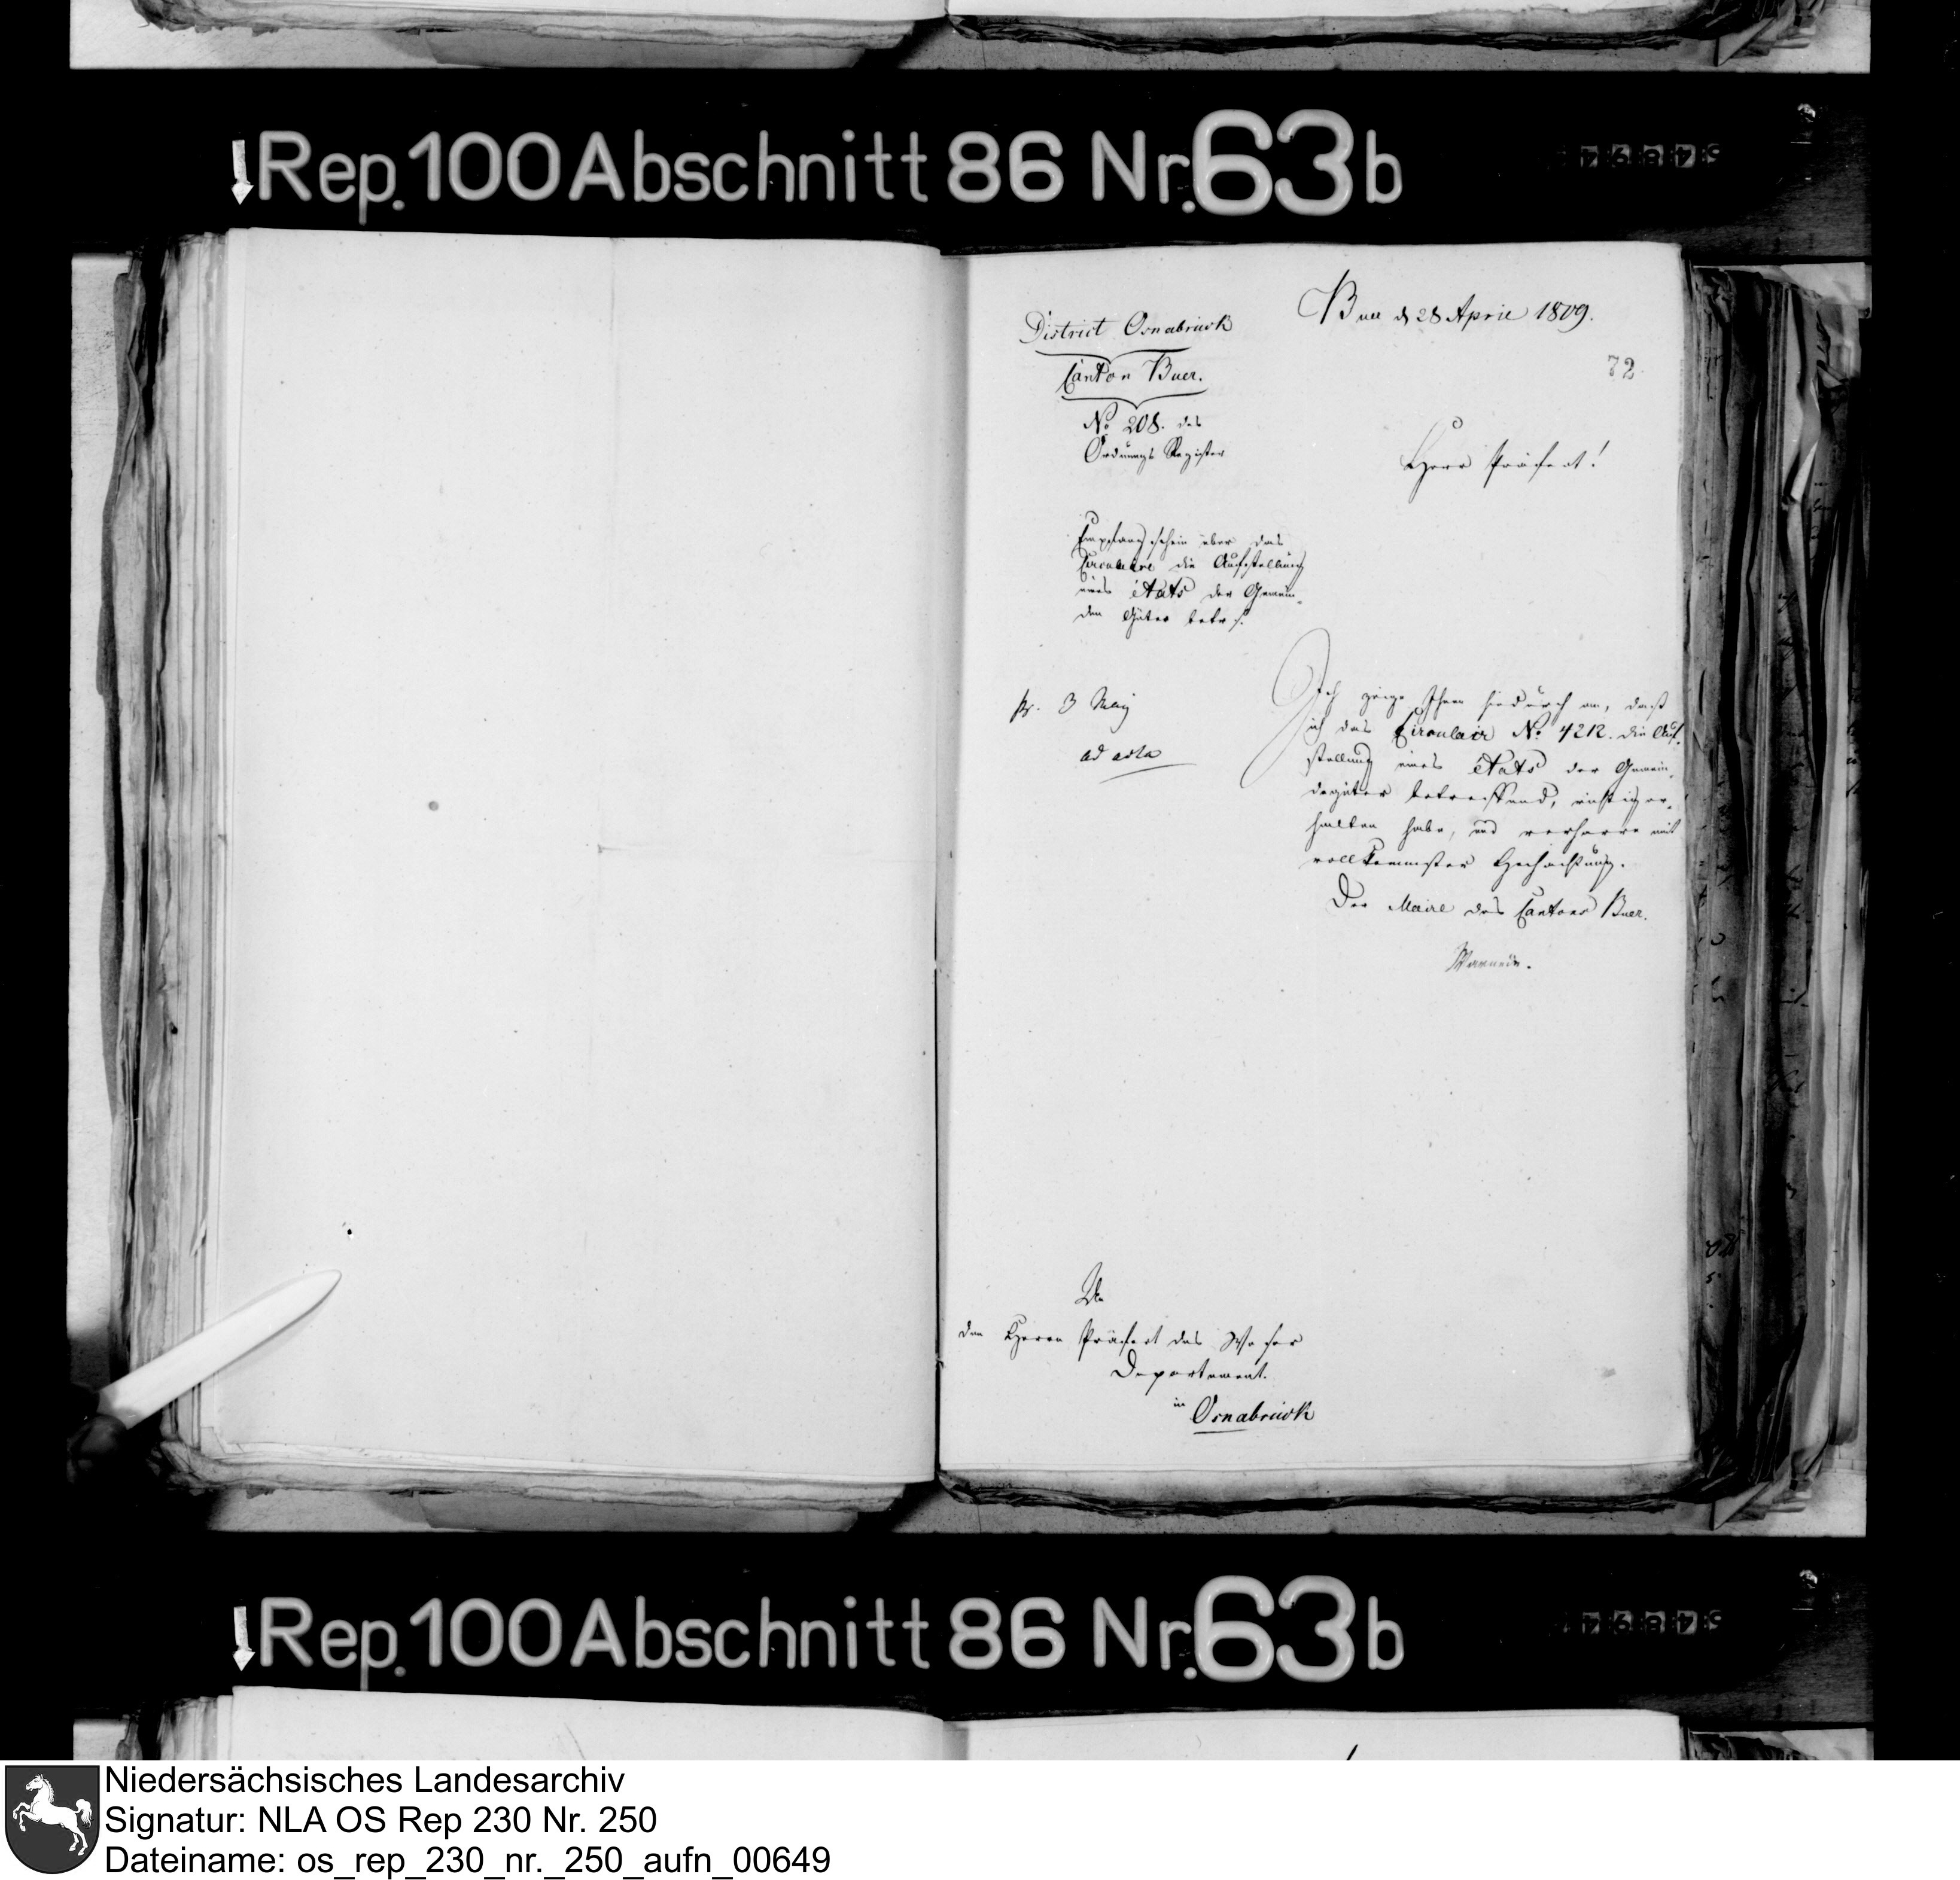 Rep. 100 Abschnitt 86 Nr. 63 b
Buer d 28 April 1809.
District Osnabrück
Canton Buer.
No 208. des
Ordnungs Register
72
Herr Präfect!
Empfangschein über das
Circulaire die Aufstellung
eines états der Gemein-
den Güter betrf.
Ich zeige Ihnen hiedurch an, daß
ich das Circulair No. 4212. die Auf-
stellung eines états der Gemein-
degüter betreffend, richtig er-
halten habe, und verharre mit
vollkommster Hochachtung.
Der Maire des Cantons Buer.
pr. 3 May
ad acta
An
den Herrn Präfect des Weser
Departement.
in Osnabrück
Rep. 100 Abschnitt 86 Nr. 63 b
Niedersächsisches Landesarchiv
Signatur: NLA OS Rep 230 Nr. 250
Dateiname: os_rep_230_nr._250_aufn_00649